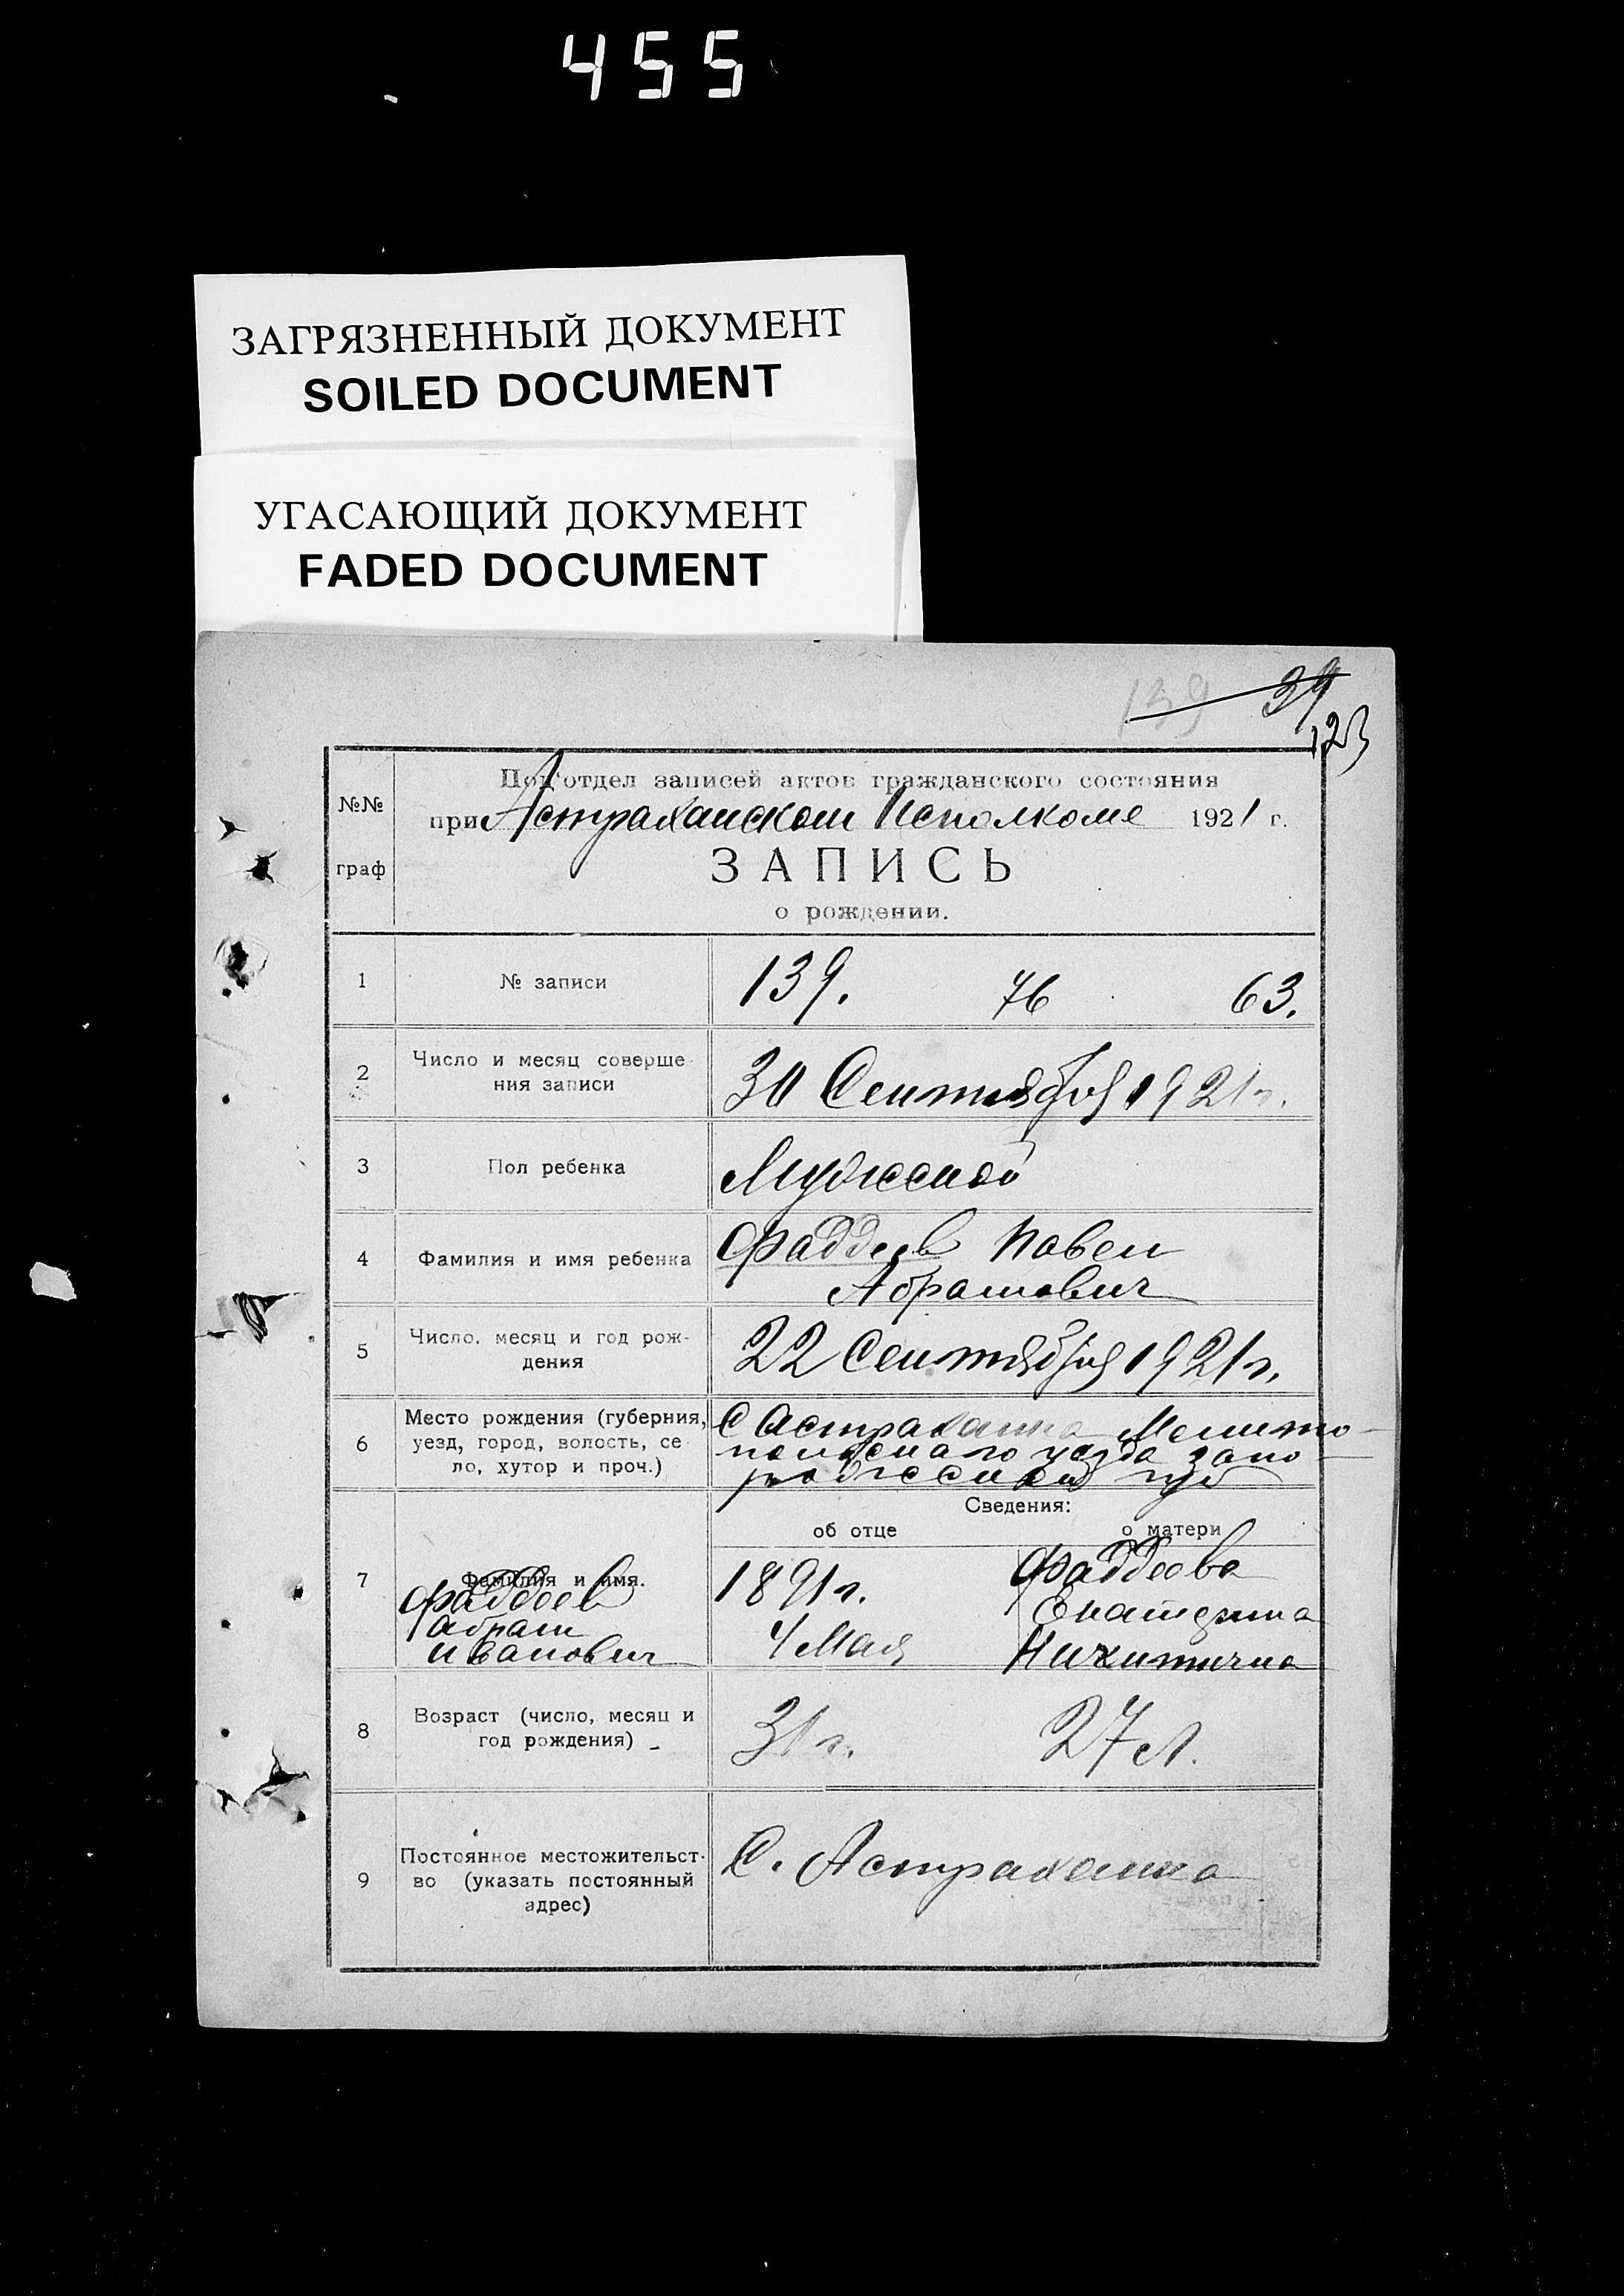 455
ЗАГРЯЗНЕННЫЙ ДОКУМЕНТ
SOILED DOCUMENT
УГАСАЮЩИЙ ДОКУМЕНТ
FADED DOCUMENT
139 39
123
№№
граф
Под'отдел записей актов гражданского состояния
при Астраханском Исполкоме 1921 г.
ЗАПИСЬ
о рождении.
1 № записи 139. 76 63.
2 Число и месяц соверше-
ния записи
30 Сентября 1921 г.
3 Пол ребенка Мужской
4 Фамилия и имя ребенка
Фаддеев Павел
Абрамович
5 Число, месяц и год рож-
дения
22 Сентября 1921 г.
6 Место рождения (губерния,
уезд, город, волость, се-
ло, хутор и проч.)
С Астраханка Мелито-
польского уезда Запо-
рожской губ
Сведения:
об отце о матери
7 Фамилия и имя.
Фаддеев
Абрам
Иванович
1891 г.
4 Мая
Фаддеева
Екатерина
Никитична
8 Возраст (число, месяц и
год рождения)
31 г. 27 л.
9 Постоянное местожительст-
во (указать постоянный
адрес)
С. Астраханка